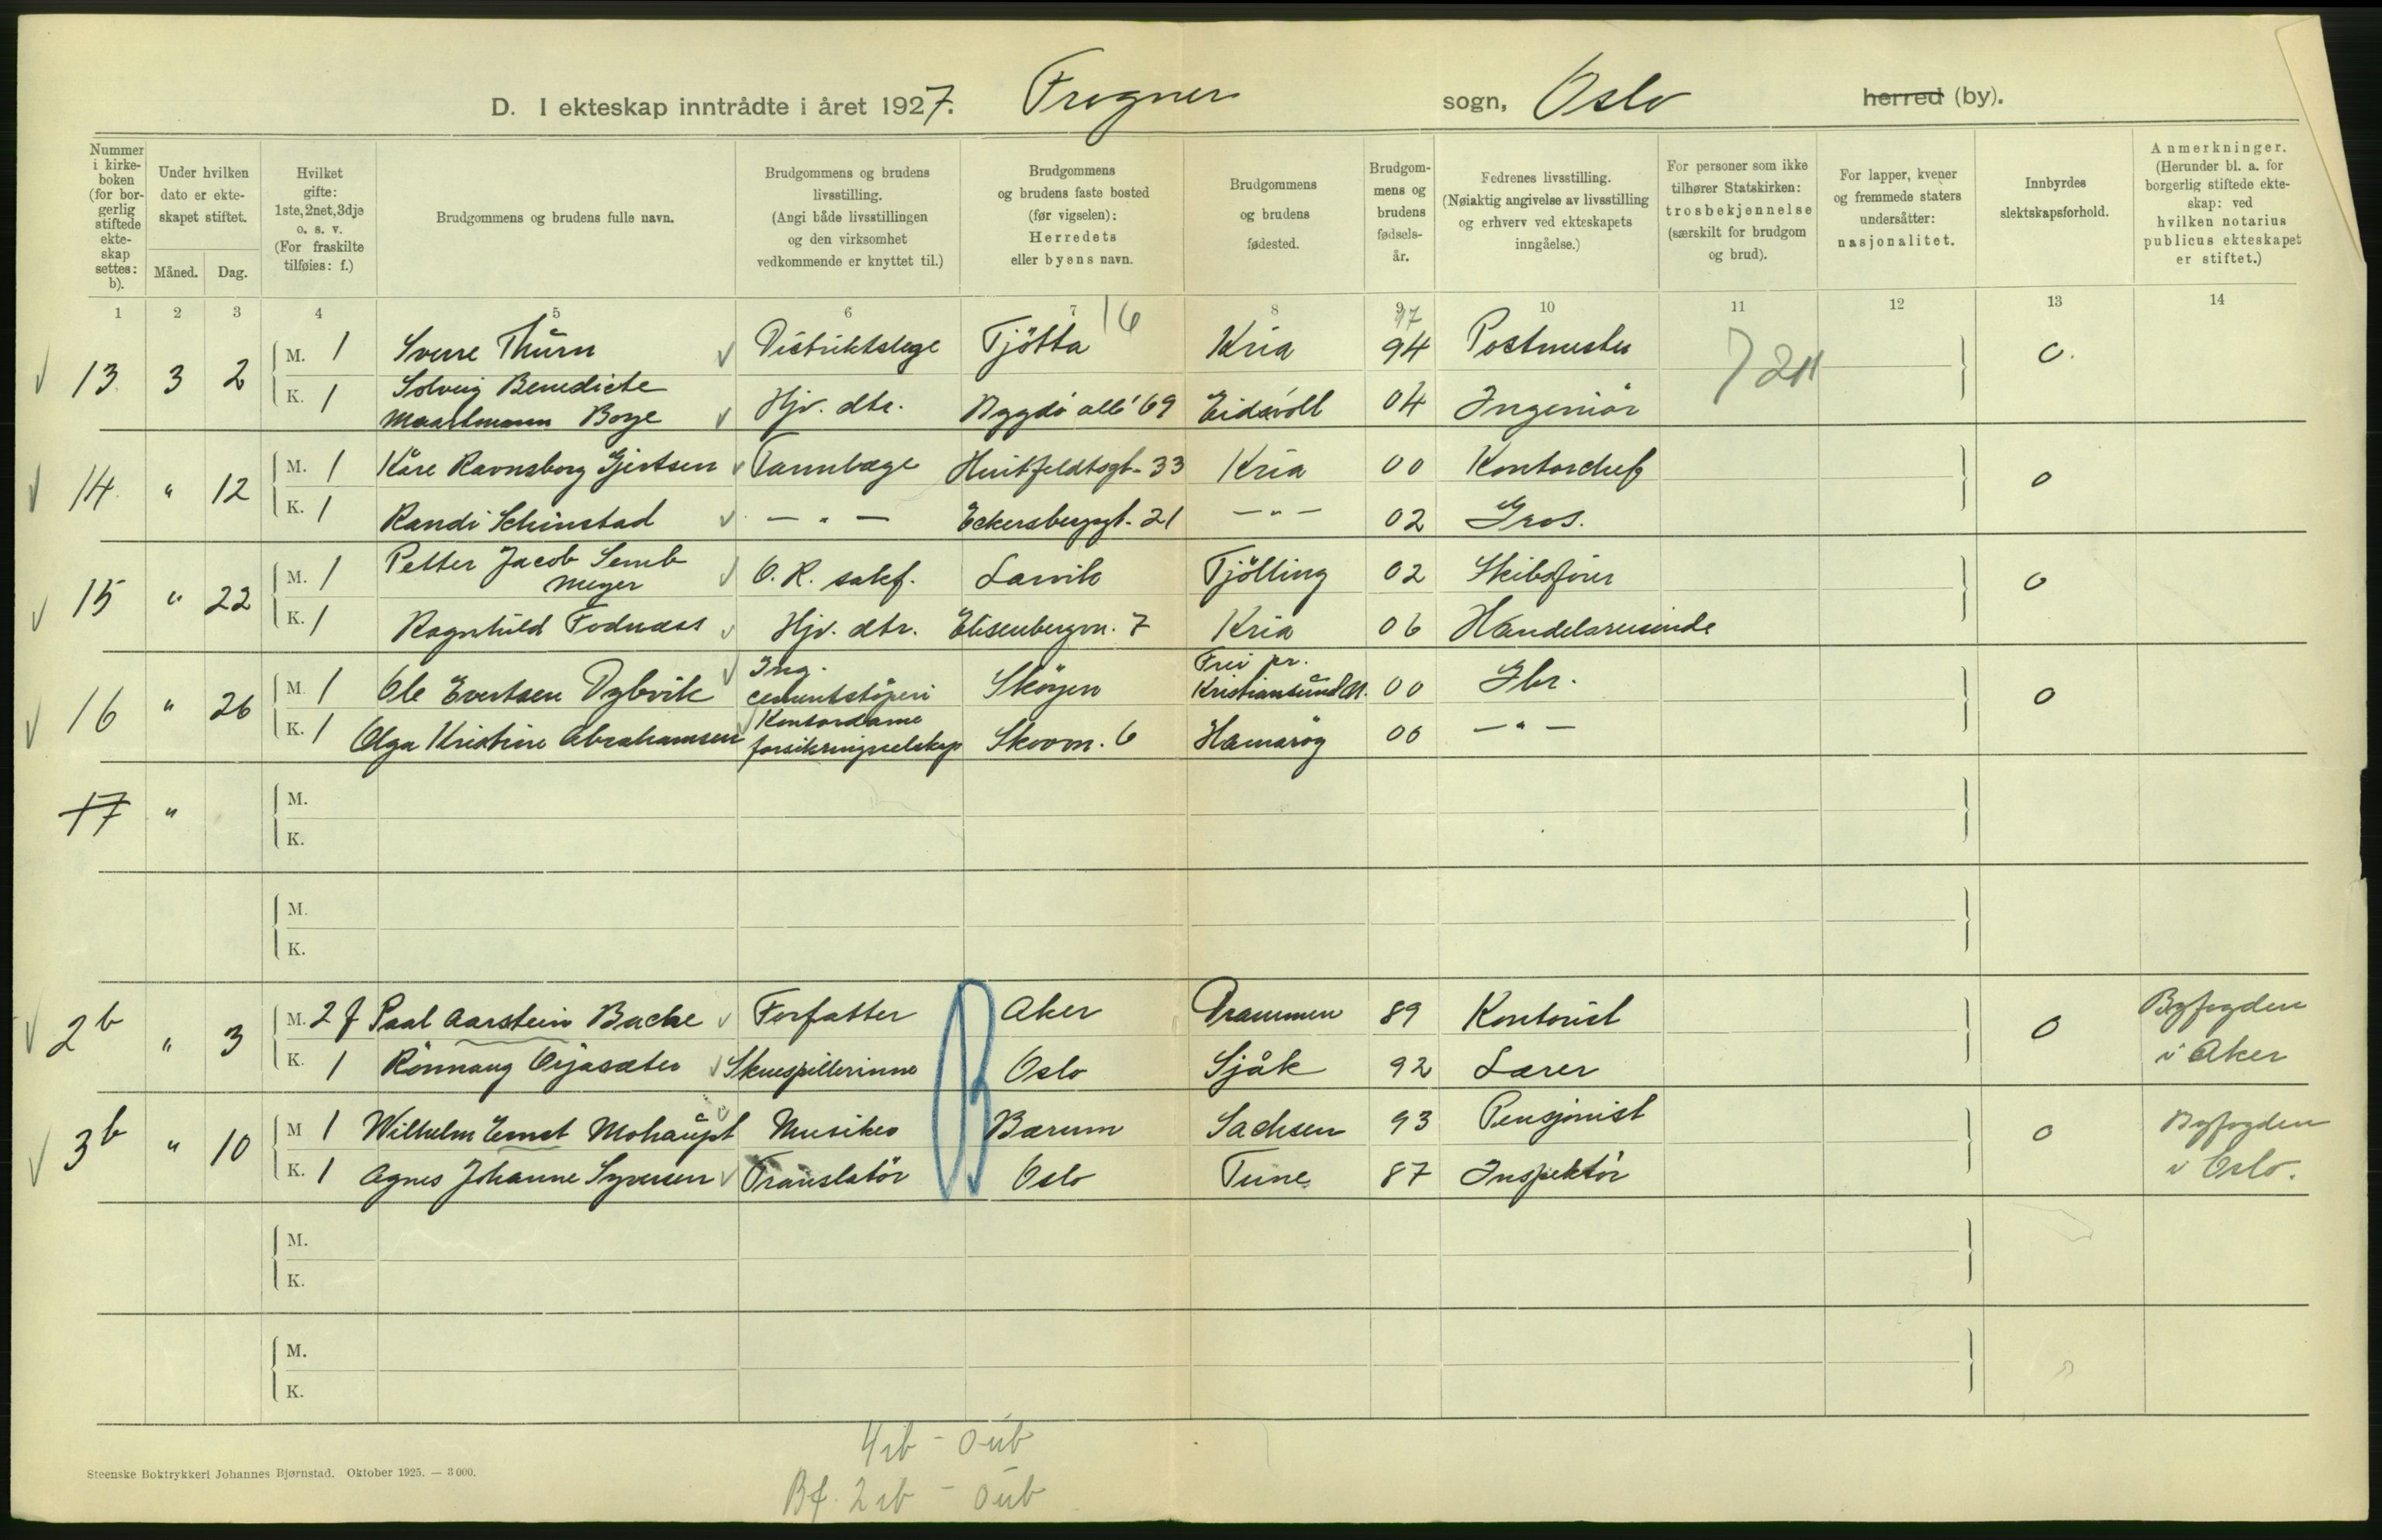 D. I ekteskap inntrådte i året 1927. Frogner sogn, Oslo herred (by).
Nummer i kirke-boken (for bor-gerlig stiftede ekte-skap settes: b).
Under hvilken dato er ekte-skapet stiftet.
Måned. Dag.
Hvilket gifte: 1ste, 2net, 3dje o. s. v. (For fraskilte tilføies: f.)
Brudgommens og brudens fulle navn.
Brudgommens og brudens livsstilling. (Angi både livsstillingen og den virksomhet vedkommende er knyttet til.)
Brudgommens og brudens faste bosted (før vigselen): Herredets eller byens navn.
Brudgommens og brudens fødested.
Brudgom-mens og brudens fødsels-år.
Fedrenes livsstilling. (Nøiaktig angivelse av livsstilling og erhverv ved ekteskapets inngåelse.)
For personer som ikke tilhører Statskirken: trosbekjennelse (særskilt for brudgom og brud).
For lapper, kvener og fremmede staters undersåtter: nasjonalitet.
Innbyrdes slektskapsforhold.
Anmerkninger. (Herunder bl. a. for borgerlig stiftede ekte-skap: ved hvilken notarius publicus ekteskapet er stiftet.)
1 2 3 4 5 6 7 8 9 10 11 12 13 14
16 97
13. 3 2 M. 1 Sverre Thurn Distriktslege Tjøtta Kria 94 Postmester 0.
K. 1 Solveig Benedicte Maartmann Boye Hjv. dtr. Bygdø allé 69 Eidsvoll 04 Ingeniør
14. " 12 M. 1 Kåre Ravnsborg Gjertsen Tannlæge Huitfeldtsgt. 33 Kria 00 Kontorchef 0
K. 1 Randi Schinstad — " — Eckersbergsgt. 21 — " — 02 Gros.
15 " 22 M. 1 Petter Jacob Semb Meyer O. R. sakf. Larvik Tjølling 02 Skibsfører 0
K. 1 Ragnhild Fodnæss Hjv. dtr. Elisenbergvn. 7 Kria 06 Handelsreisende
16 " 26 M. 1 Ole Evertsen Dybvik Ing. cementstøperi Skøyen Frei pr. Kristiansund N. 00 Gbr. 0
K. 1 Olga Kristine Abrahamsen Kontordame forsikringsselskap Skovvn. 6 Hamarøy 00 — " —
17 " M.
K.
M.
K.
2b " 3 M. 2 f Paal Aarstein Backe Forfatter Aker Drammen 89 Kontorist 0 Byfogden
K. 1 Rønnaug Øyasæter Skuespillerinne Oslo Sjåk 92 Lærer i Aker
3b " 10 M 1 Wilhelm Ernst Mohaupt Musiker Bærum Sachsen 93 Pensjonist 0 Byfogden
K. 1 Agnes Johanne Syversen Translatør Oslo Tune 87 Inspektør i Oslo.
M.
K.
M.
K.
Steenske Boktrykkeri Johannes Bjørnstad. Oktober 1925. — 3000.
4 ib - 0 ub
Bf. 2 ib - 0 ub